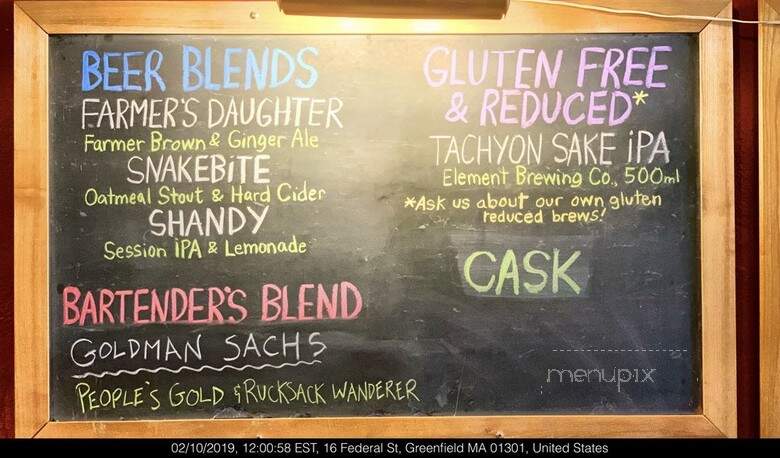 BEER BLENDS
FARMER'S DAUGHTER
Farmer Brown & Ginger Ale
SNAKEBiTE
Oatmeal Stout & Hard Cider
SHANDY
Session IPA & Lemonade
BARTENDER'S BLEND
GOLDMAN SACHS
PEOPLE'S GOLD & RUCKSACK WANDERER
GLUTEN FREE
& REDUCED*
TACHYON SAKE iPA
Element Brewing Co., 500ml
*Ask us about our own gluten
reduced brews!
CASK
menupix
02/10/2019, 12:00:58 EST, 16 Federal St, Greenfield MA 01301, United States